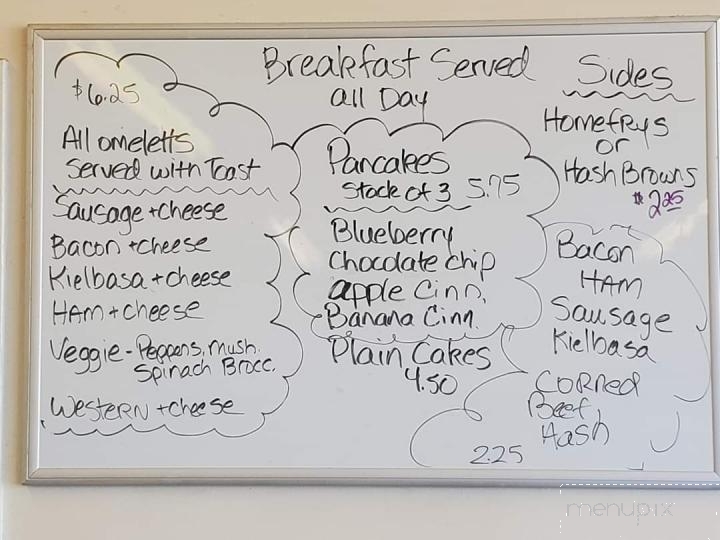 Breakfast Served
all Day
$6.25
All omeletts
Served with Toast
Sausage + cheese
Bacon + cheese
Kielbasa + cheese
HAM + cheese
Veggie - Peppers, mush.
Spinach Brocc.
WESTERN + cheese
Pancakes
Stack of 3 5.75
Blueberry
Chocolate chip
apple Cinn.
Banana Cinn.
Plain Cakes
4.50
Sides
Homefrys
or
Hash Browns
$2.25
Bacon
HAM
Sausage
Kielbasa
CORNed
Beef
Hash
2.25
menupix